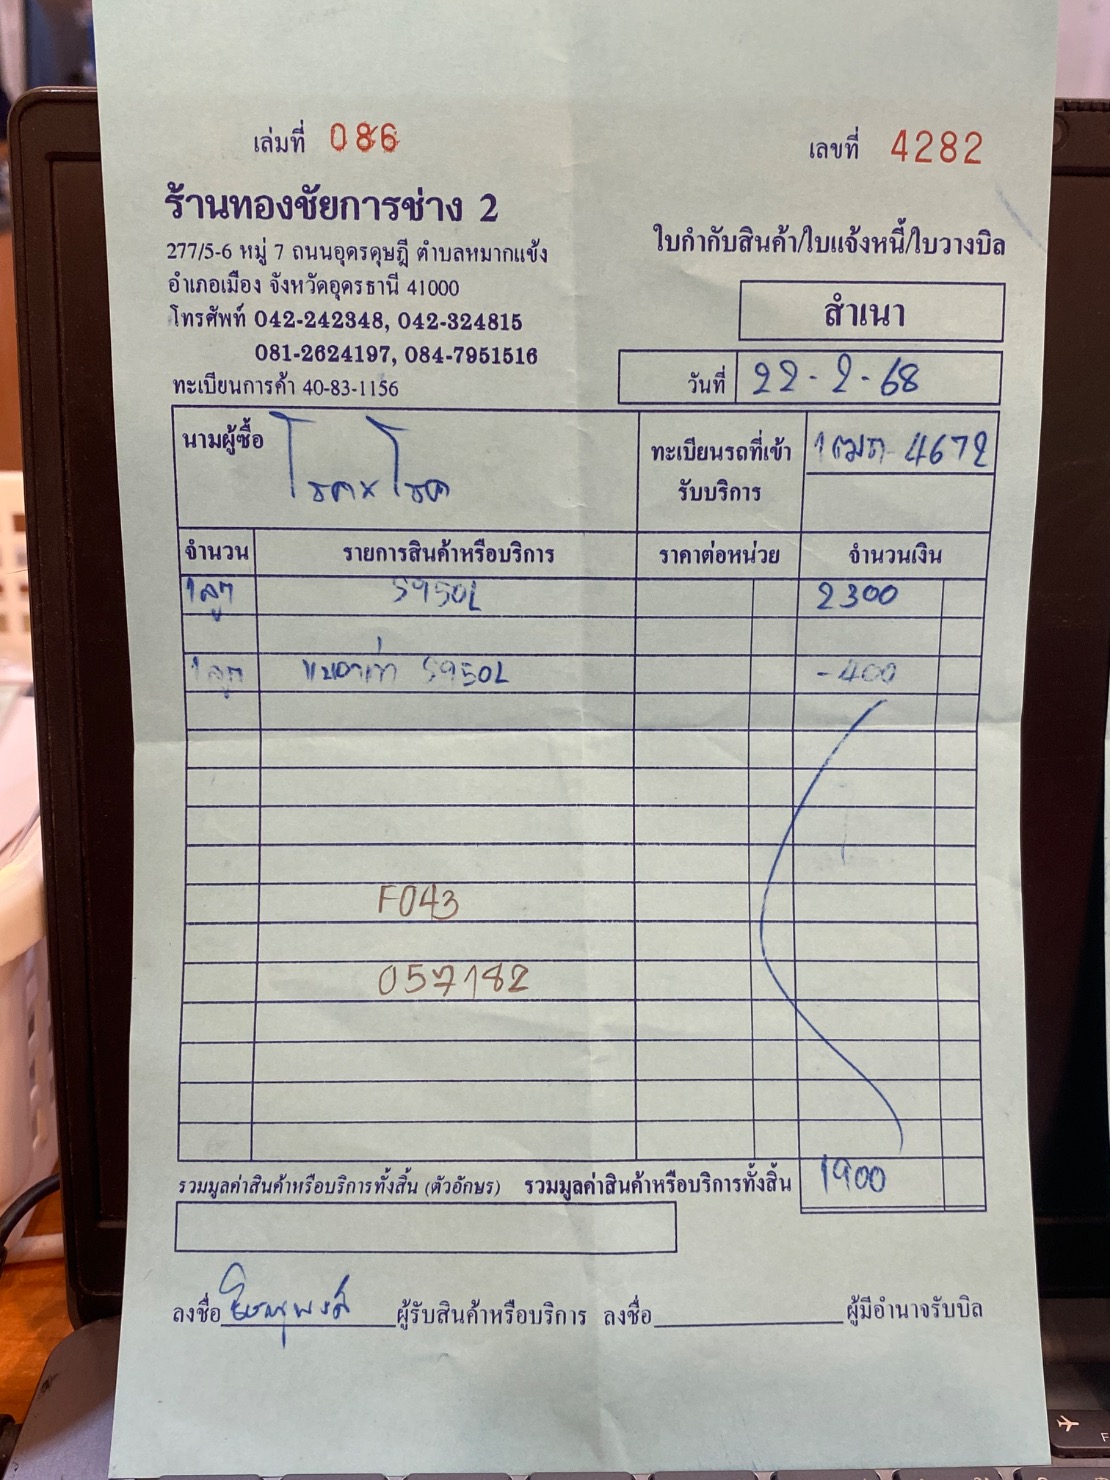 เล่มที่ 086
เลขที่ 4282
ร้านทองชัยการช่าง 2
277/5-6 หมู่ 7 ถนนอุดรดุษฎี ตำบลหมากแข้ง
อำเภอเมือง จังหวัดอุดรธานี 41000
โทรศัพท์ 042-242348, 042-324815
081-2624197, 084-7951516
ทะเบียนการค้า 40-83-1156
ใบกำกับสินค้า/ใบแจ้งหนี้/ใบวางบิล
สำเนา
วันที่ 22-2-68
นามผู้ซื้อ โชคxโชค
ทะเบียนรถที่เข้า 4672
รับบริการ
จำนวน รายการสินค้าหรือบริการ ราคาต่อหน่วย จำนวนเงิน
1ลูก S950L 2300
1ลูก แบตเก่า S950L -400
F043
057182
รวมมูลค่าสินค้าหรือบริการทั้งสิ้น (ตัวอักษร) รวมมูลค่าสินค้าหรือบริการทั้งสิ้น 1900
ลงชื่อ ผู้รับสินค้าหรือบริการ ลงชื่อ ผู้มีอำนาจรับบิล